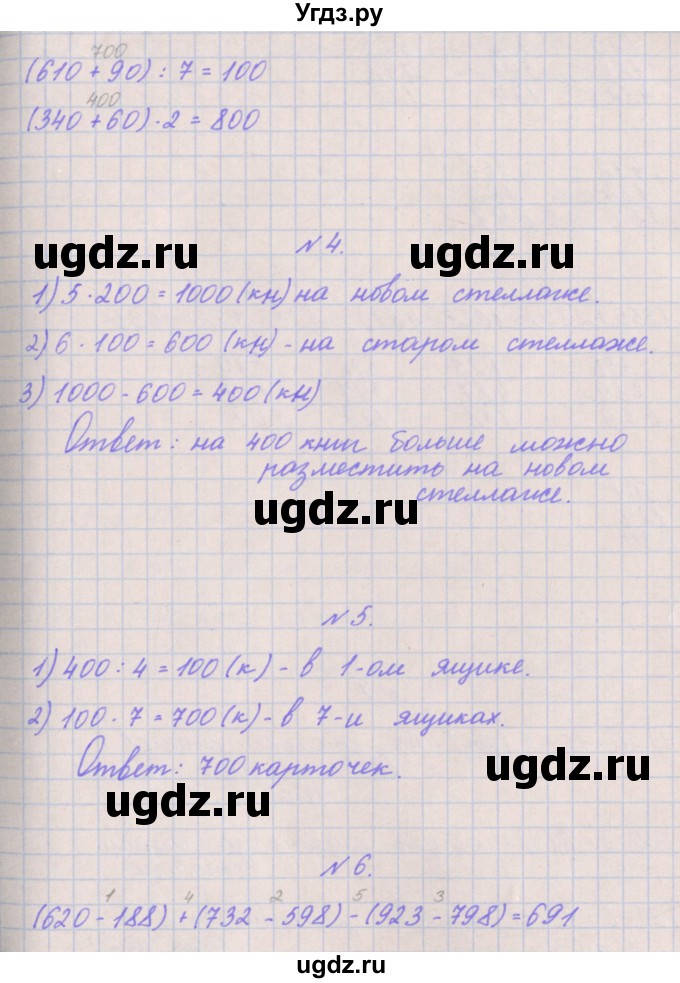 Угдз.ру
700
(610 + 90) : 7 = 100
400
(340 + 60) · 2 = 800
ugdz.ru
ugdz.ru
№ 4.
1) 5 · 200 = 1000 (кн) на новом стеллаже.
2) 6 · 100 = 600 (кн) - на старом стеллаже.
3) 1000 - 600 = 400 (кн)
Ответ: на 400 книг больше можно
разместить на новом
стеллаже.
ugdz.ru
№ 5.
1) 400 : 4 = 100 (к) - в 1-ом ящике.
2) 100 · 7 = 700 (к) - в 7-и ящиках.
Ответ: 700 карточек.
ugdz.ru
ugdz.ru
№ 6.
1 4 2 5 3
(620 - 188) + (732 - 598) - (923 - 798) = 691
ugdz.ru